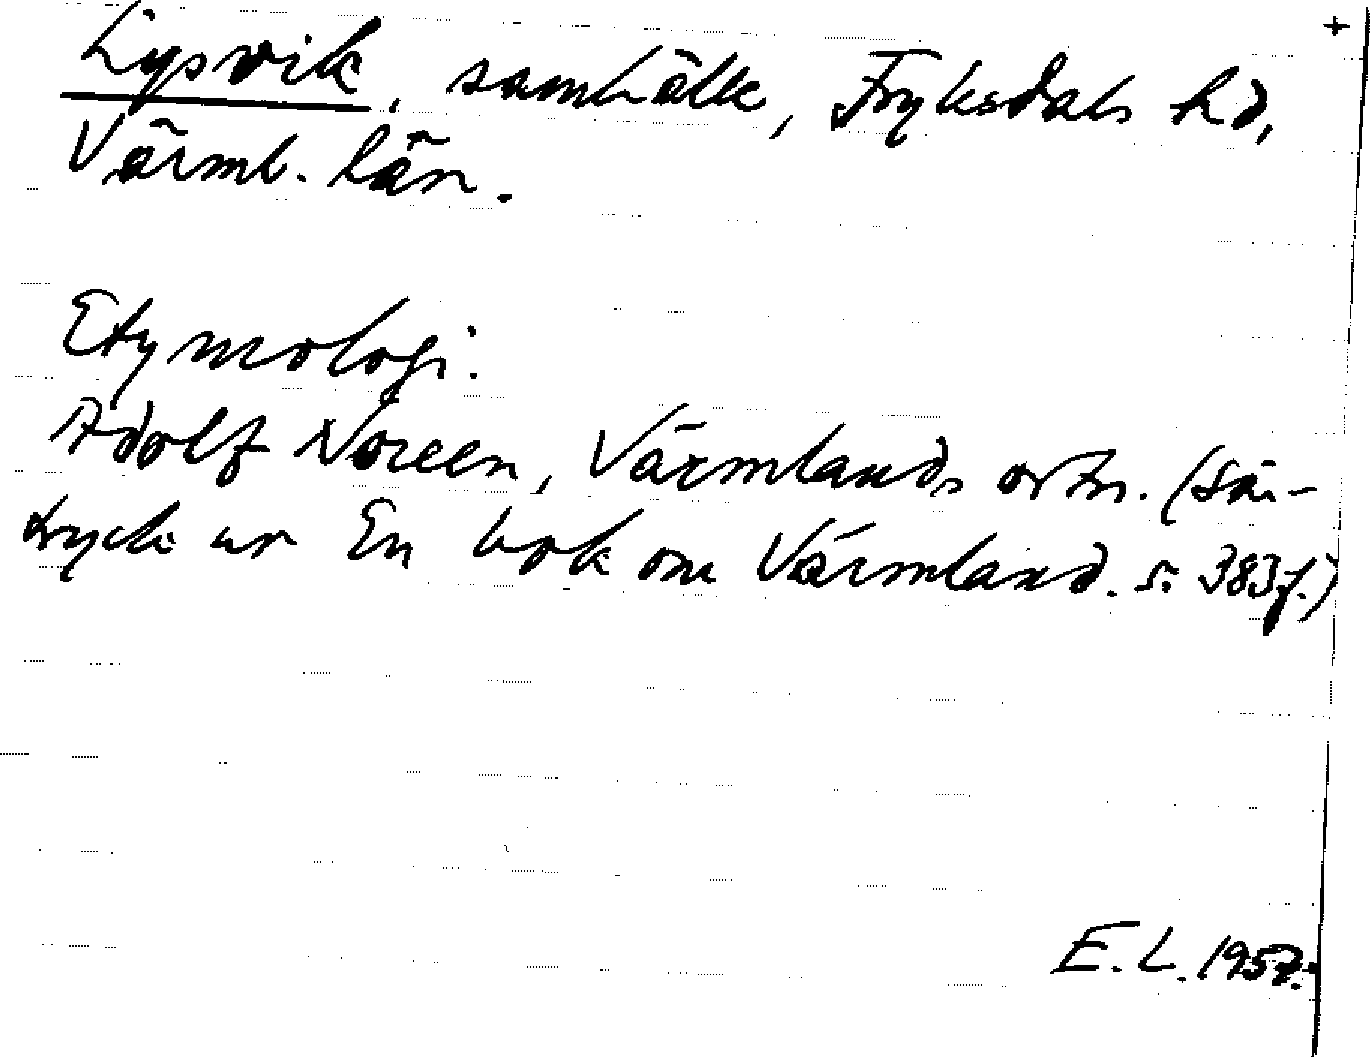 +
Lysvik, samhälle, Fryksdals hd,
Värml. län.
Etymologi.
Adolf Noreen, Värmlands ortn. (Sär-
tryck ur En bok om Värmland. s. 383 f.)
E. L. 1957.